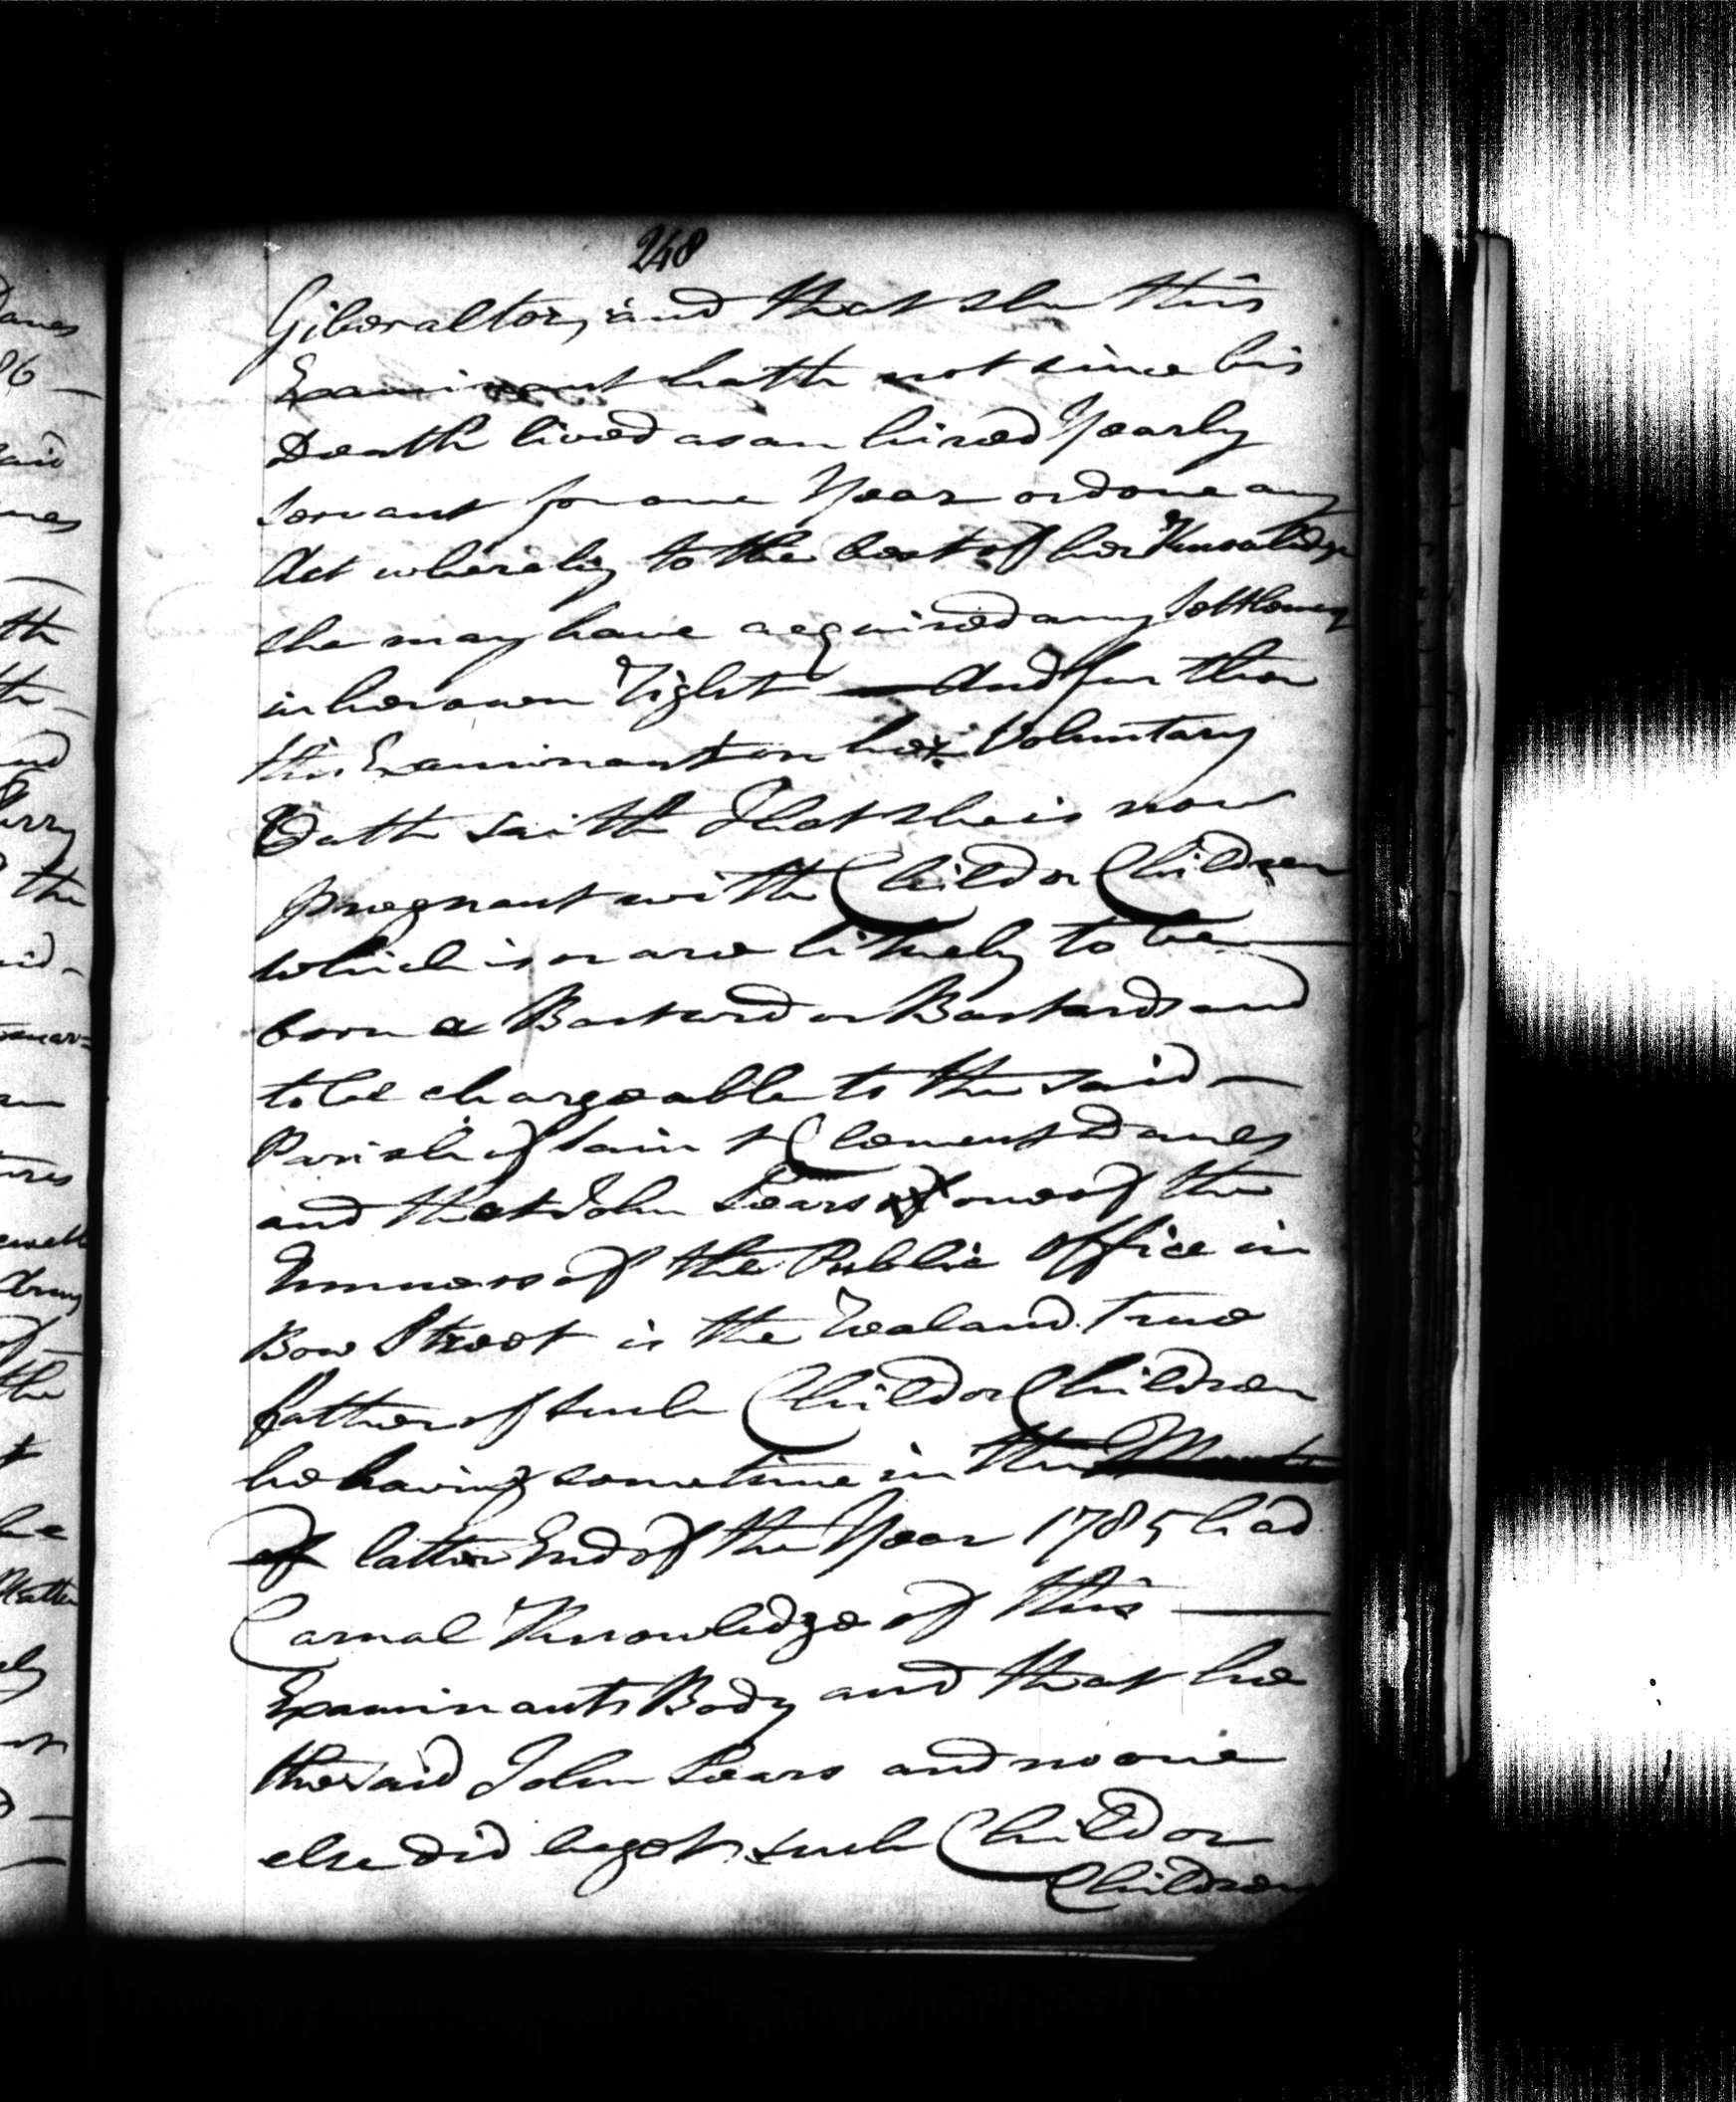 248
Giberaltor, and that she this
Examinant hath not since his
Death lived as an hired Yearly
Servant for one Year or done any
Act whereby to the best of her Knowledge
she may have acquired any Settlement
in her own Right — And further
this Examinant on her Voluntary
Oath saith That she is now
pregnant with Child or Children
which is or are likely to be —
born a Bastard or Bastards and
to be chargeable to the said —
Parish of Saint Clement Danes
and that John Sears of one of the
Runners of the Public Office in
Bow Street is the Real and True
father of such Child or Children
he having sometime in the Month
of latter End of the Year 1785 had
Carnal Knowledge of this —
Examinants Body and that he
the said John Sears and no one
else did beget such Child or
Children